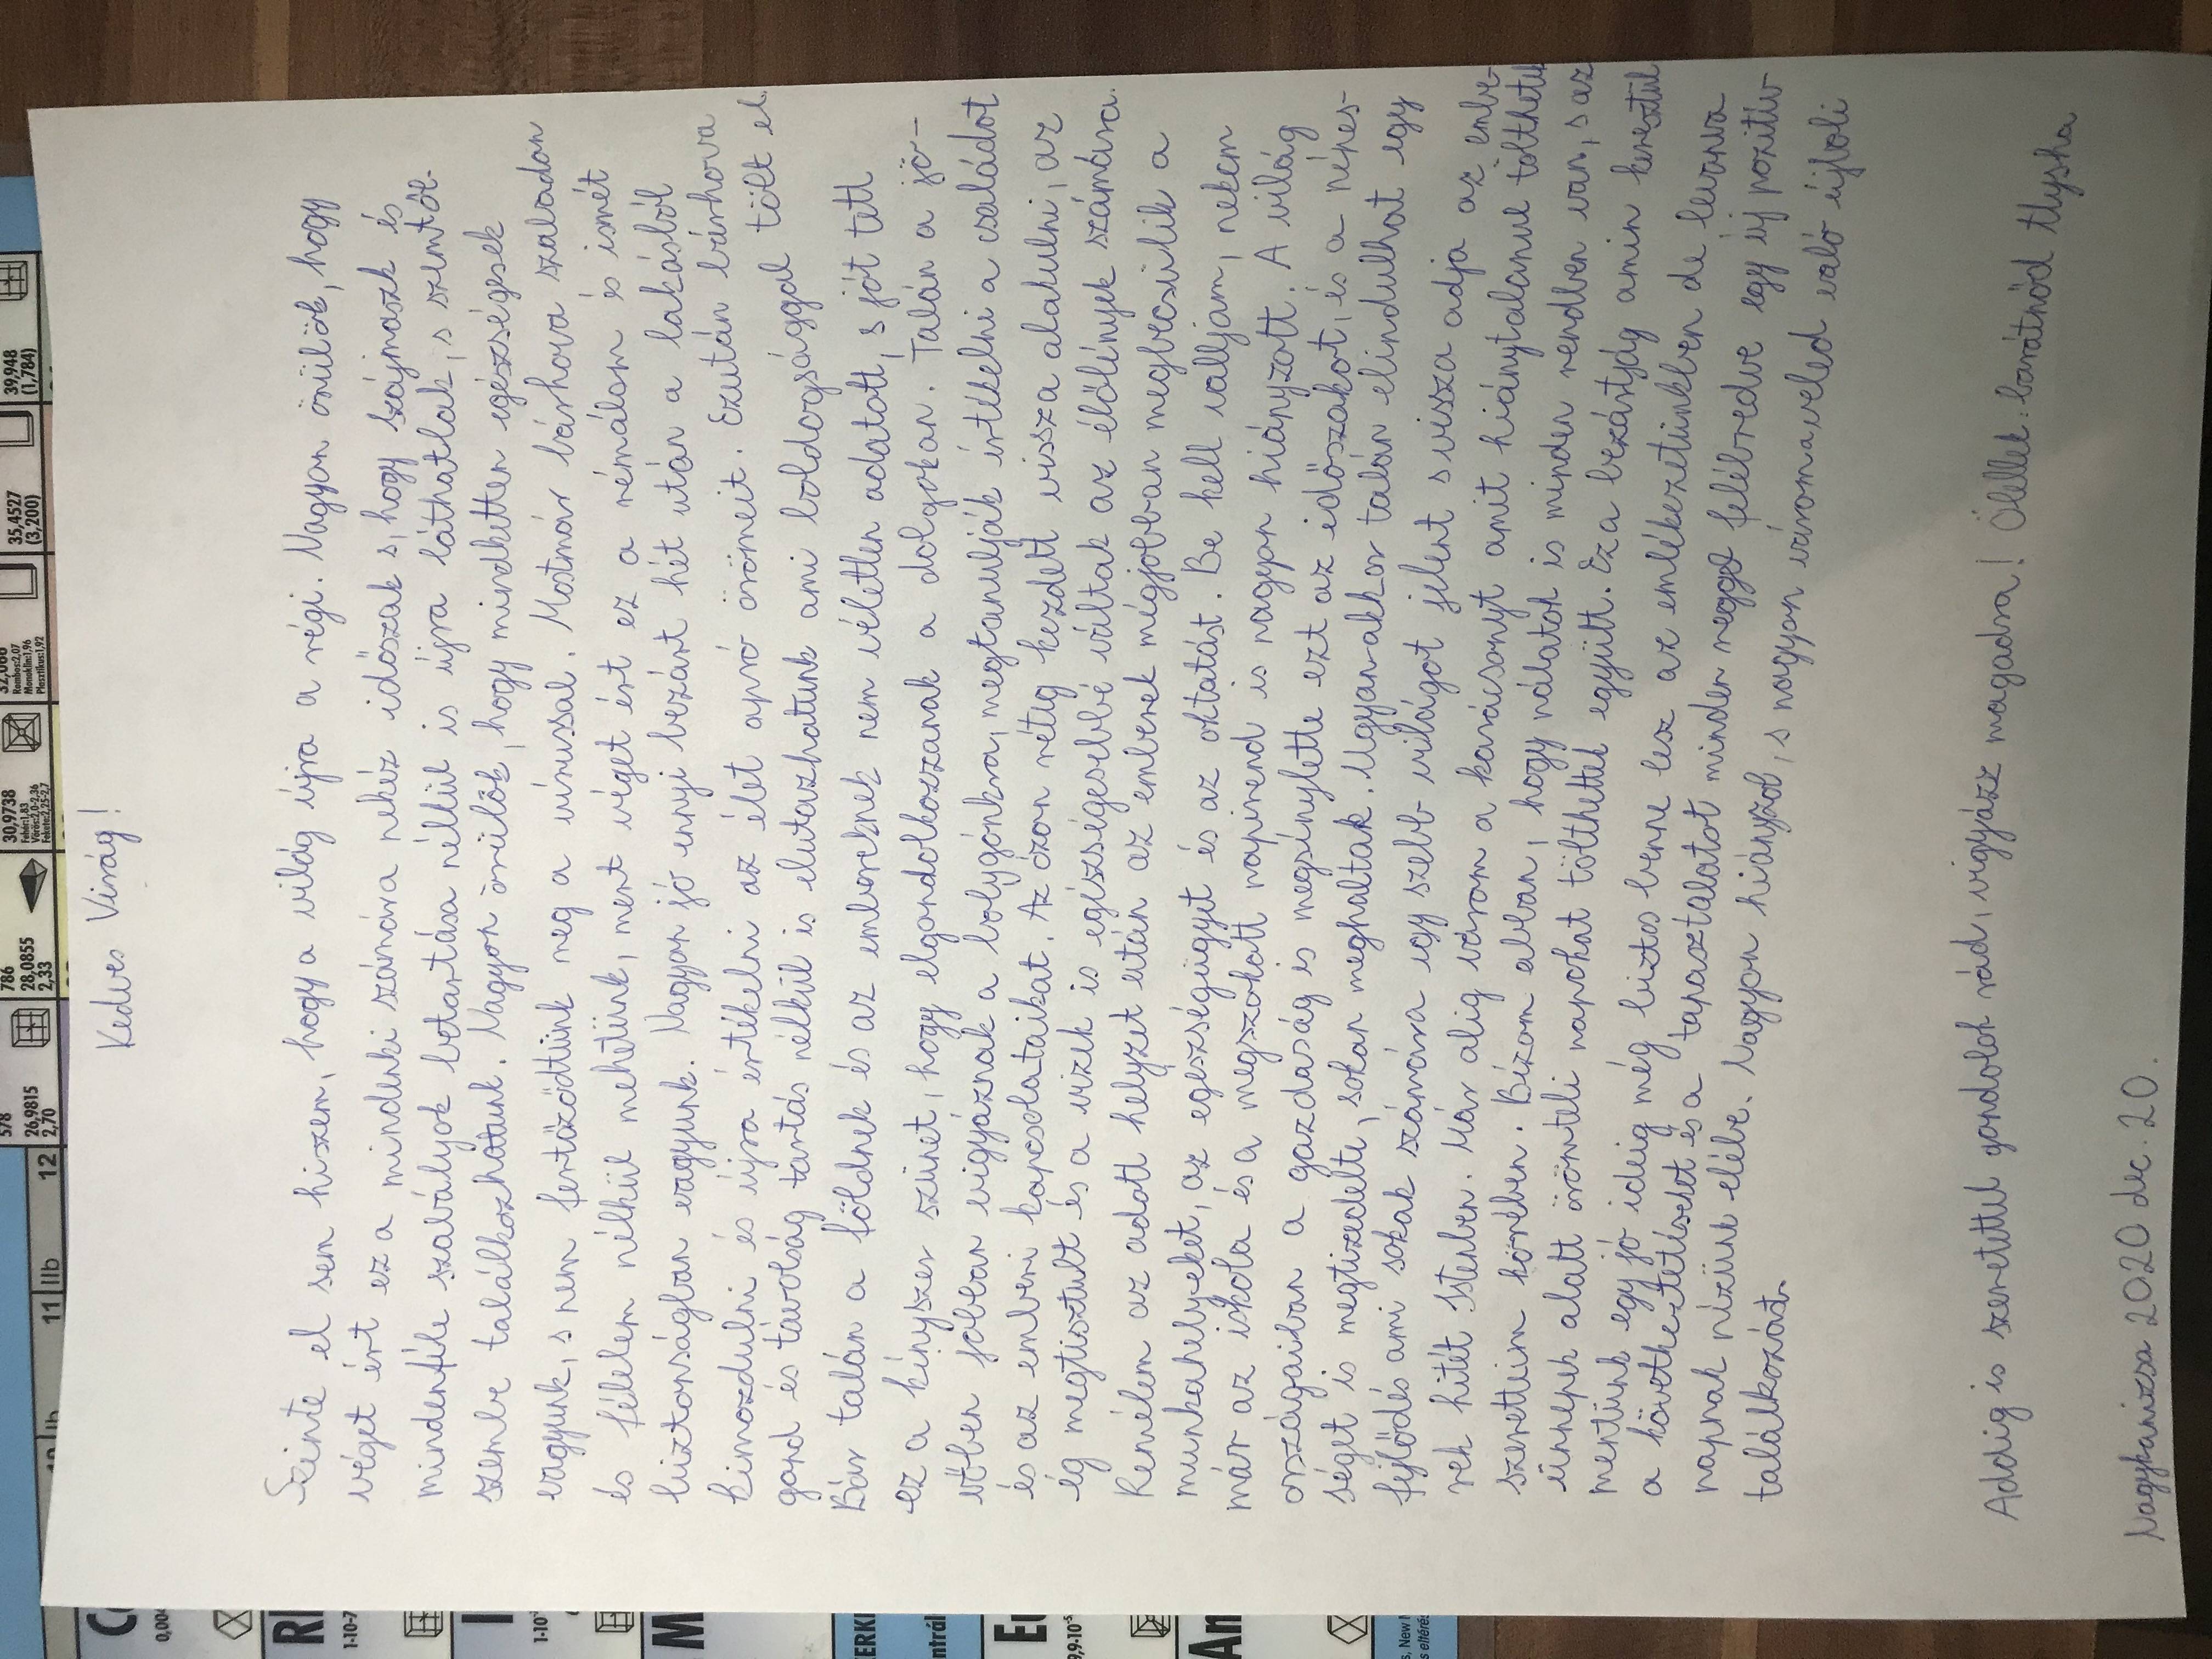 Kedves Virág!
Szinte el sem hiszem, hogy a világ újra a régi. Nagyon örülök, hogy
véget ért ez a mindenki számára nehéz időszak s, hogy szájmaszk és
mindenféle szabályok betartása nélkül is újra láthatlak, s szemtől-
szembe találkozhatunk. Nagyon örülök, hogy mindketten egészségesek
vagyunk, s nem fertőződtünk meg a vírussal. Mostmár bárhova szabadon
és félelem nélkül mehetünk, mert véget ért ez a rémálom és ismét
biztonságban vagyunk. Nagyon jó ennyi bezárt hét után a lakásból
kimozdulni és újra értékelni az élet apró örömeit. Ezután bárhova
gond és távolság tartás nélkül is elutazhatunk ami boldogsággal tölt el.
Bár talán a földnek és az embereknek nem véletlen adatott, s jót tett
ez a kényszer szünet, hogy elgondolkozzanak a dolgokon. Talán a jö-
vőben jobban vigyáznak a bolygónkra, megtanulják értékelni a családot
és az emberi kapcsolataikat. Az ózon réteg kezdett vissza alakulni, az
ég megtisztult és a vizek is egészségesebbé váltak az élőlények számára.
Remélem az adott helyzet után az emberek mégjobban megbecsülik a
munkahelyeket, az egészségügyet és az oktatást. Be kell valljam, nekem
már az iskola és a megszokott napirend is nagyon hiányzott. A világ
országaiban a gazdaság is megsínylette ezt az időszakot, és a népes-
séget is megtizedelte, sokan meghaltak. Ugyan akkor talán elindulhat egy
fejlődés ami sokak számára egy szebb világot jelent s vissza adja az embe-
rek hitét Istenben. Már alig várom a karácsonyt amit hiánytalanul tölthetek
szeretteim körében. Bízom abban, hogy nálatok is minden rendben van, s az
ünnepek alatt örömteli napokat tölthettek együtt. Ez a bezártság amin keresztül
mentünk egy jó ideig még biztos benne lesz az emlékezetünkben de levonva
a következtetéseket és a tapasztalatot minden reggel felébredve egy új pozitív
napnak nézünk elébe. Nagyon hiányzol, s nagyon várom a veled való újboli
találkozást.
Addig is szeretettel gondolok rád, vigyázz magadra! Ölellek: barátnőd
Nagykanizsa 2020 dec. 20.
578
26,9815
2,70
786
28,0855
2,33
30,9738
35,4527
(3,200)
39,948
(1,784)
11 IIb
12